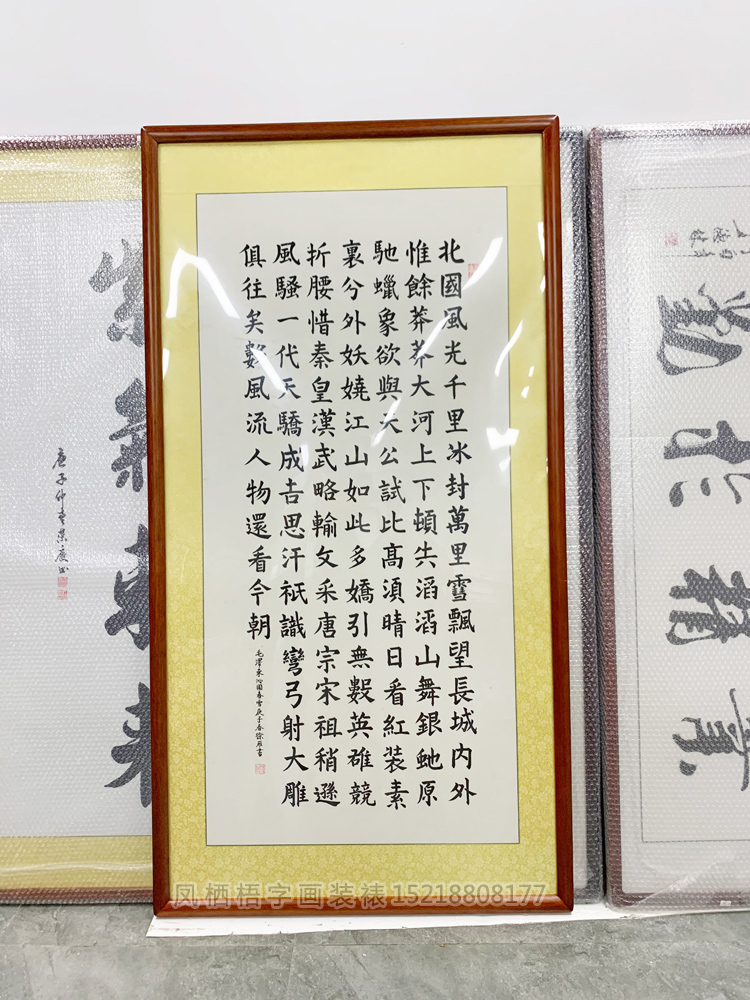 北國風光千里冰封萬里雪飄望長城内外
惟餘莽莽大河上下頓失滔滔山舞銀虵原
馳蠟象欲與天公試比高須晴日看紅装素
裏兮外妖嬈江山如此多嬌引無數英雄競
折腰惜秦皇漢武略輸文采唐宗宋祖稍遜
風騷一代天驕成吉思汗祇識彎弓射大雕
俱往矣數風流人物還看今朝
毛澤東沁園春雪庚子春徐書
紫氣東來
庚子仲春
業精於勤
凤栖梧字画装裱15218808177